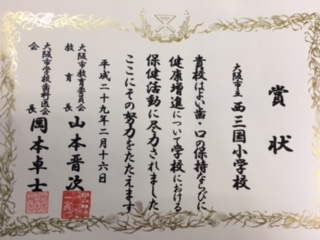 賞状
大阪市立 西三国小学校
貴校はよい歯・口の保持ならびに
健康増進について学校における
保健活動に尽力されました
ここにその努力をたたえます
平成二十九年二月十六日
大阪市教育委員会
教育長 山本晋次
大阪市学校歯科医会
会長 岡本卓士